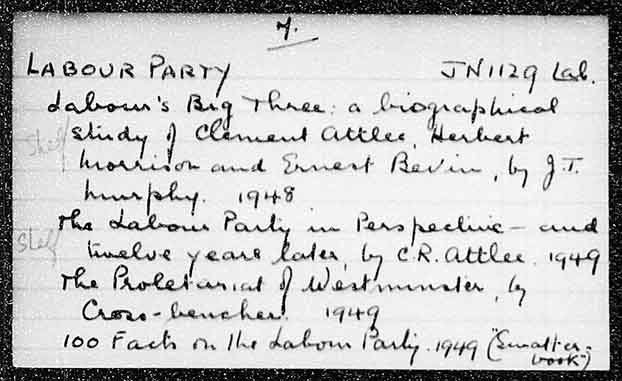 7.
LABOUR PARTY JN1129 Lab.
Labour's Big Three: a biographical
Shelf study of Clement Attlee, Herbert
Morrison and Ernest Bevin, by J.T.
Murphy. 1948
The Labour Party in Perspective – and
Shelf twelve years later, by C.R. Attlee. 1949
The Proletariat of Westminster, by
Cross-bencher. 1949
100 Facts on the Labour Party. 1949 ("Smatter-
book")